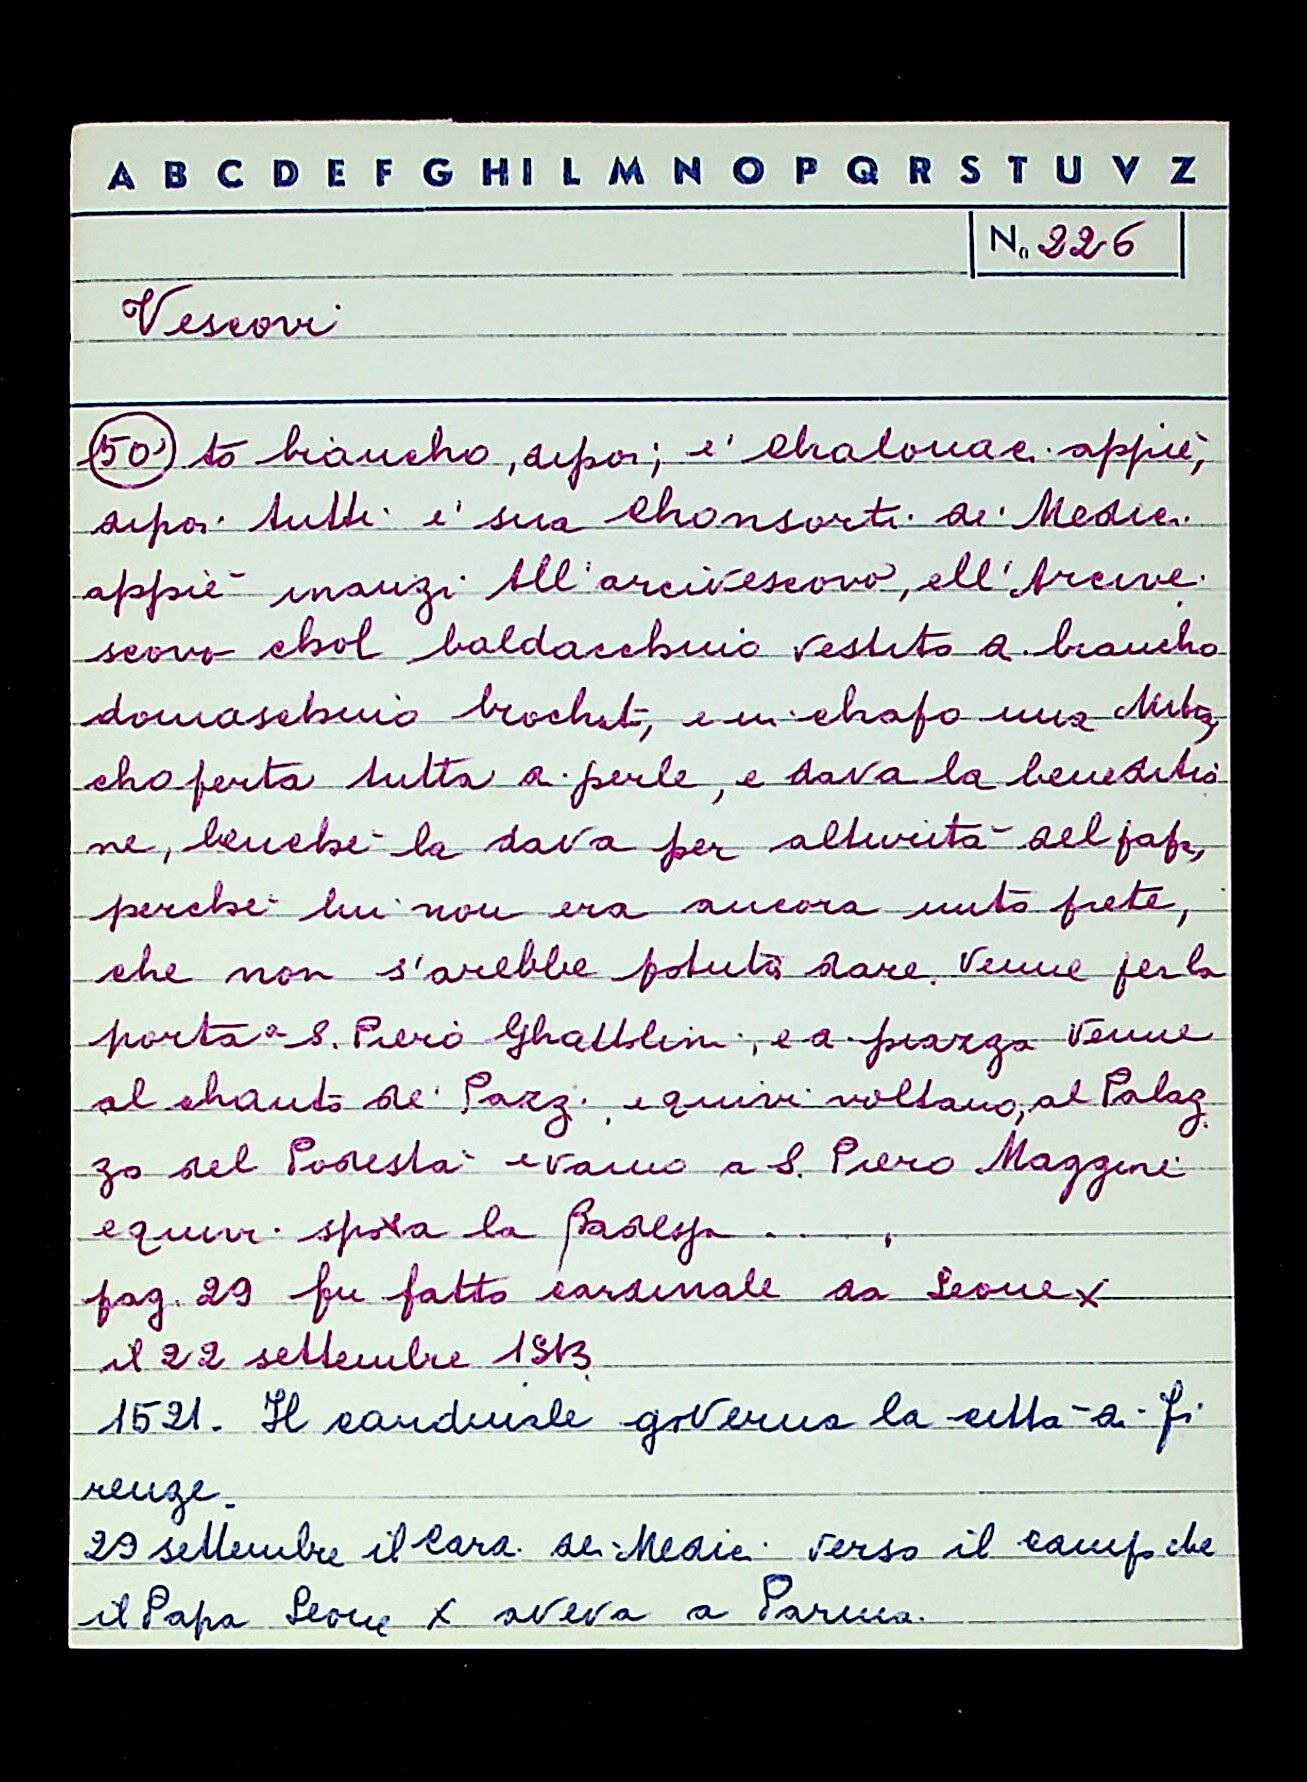 A B C D E F G H I L M N O P Q R S T U V Z
N. 226
Vescovi
50 to biancho, dipoi; e' chalonaci appiè,
dipoi tutti e' sua chonsorti de' Medici
appiè inanzi all'arcivescovo, ell'Arcive
scovo chol baldacchino vestito a biancho
domaschino brochat, e in chapo una Mitra,
choperta tutta a perle, e dava la beneditio
ne, benchè la dava per alturità del papa,
perchè lui non era ancora unto prete,
che non s'arebbe potuta dare. Venne per la
porta a S. Piero Ghattolini, e a piazza venne
al chanto de' Pazzi, e quivi voltano, al Palaz
zo del Podestà e vanno a S. Piero Maggiore
e quivi sposa la Badessa .....
pag. 29 fu fatto cardinale da Leone X
il 22 settembre 1513
1521. Il cardinale governa la città di Fi
renze.
29 settembre il Card. dei Medici verso il campo che
il Papa Leone X aveva a Parma.